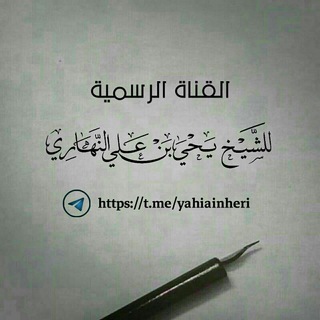 القناة الرسمية
للشَّيْخ يَحْيَ بْنْ عَلي النَّهَارِي
https://t.me/yahiainheri